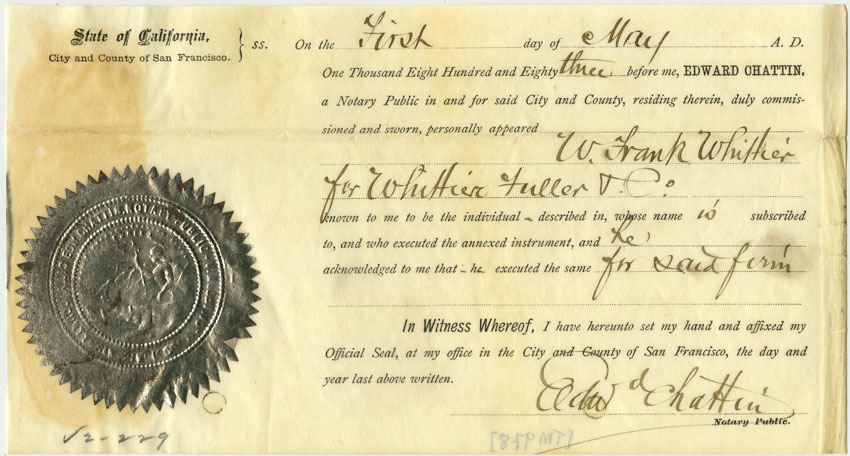 State of California,
City and County of San Francisco. } ss.
On the First day of May A. D.
One Thousand Eight Hundred and Eighty three before me, EDWARD CHATTIN,
a Notary Public in and for said City and County, residing therein, duly commis-
sioned and sworn, personally appeared
W. Frank Whittier
for Whittier Fuller & Co
known to me to be the individual - described in, whose name is subscribed
to, and who executed the annexed instrument, and he
acknowledged to me that - he executed the same for said firm
In Witness Whereof, I have hereunto set my hand and affixed my
Official Seal, at my office in the City and County of San Francisco, the day and
year last above written.
Edwd Chattin
Notary Public.
EDW CHATTIN NOTARY PUBLIC
V2-229
[TM978]